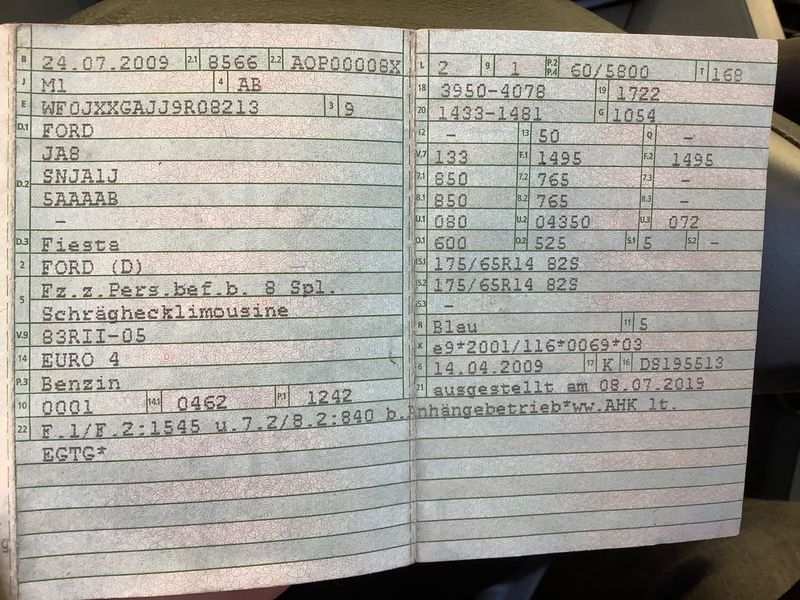 B 24.07.2009 2.1 8566 2.2 AOP00008X
J M1 4 AB
E WF0JXXGAJJ9R08213 3 9
D.1 FORD
JA8
D.2 SNJA1J
5AAAAB
–
D.3 Fiesta
2 FORD (D)
5 Fz.z.Pers.bef.b. 8 Spl.
Schräghecklimousine
V.9 83RII-05
14 EURO 4
P.3 Benzin
10 0001 14.1 0462 P.1 1242
22 F.1/F.2:1545 u.7.2/8.2:840 b.Anhängebetrieb*ww.AHK lt.
EGTG*
L 2 9 1 P.2 P.4 60/5800 T 168
18 3950-4078 19 1722
20 1433-1481 G 1054
12 – 13 50 Q –
V.7 133 F.1 1495 F.2 1495
7.1 850 7.2 765 7.3 –
8.1 850 8.2 765 8.3 –
U.1 080 U.2 04350 U.3 072
O.1 600 O.2 525 S.1 5 S.2 –
15.1 175/65R14 82S
15.2 175/65R14 82S
15.3 –
R Blau 11 5
K e9*2001/116*0069*03
6 14.04.2009 17 K 16 DS195513
21 ausgestellt am 08.07.2019